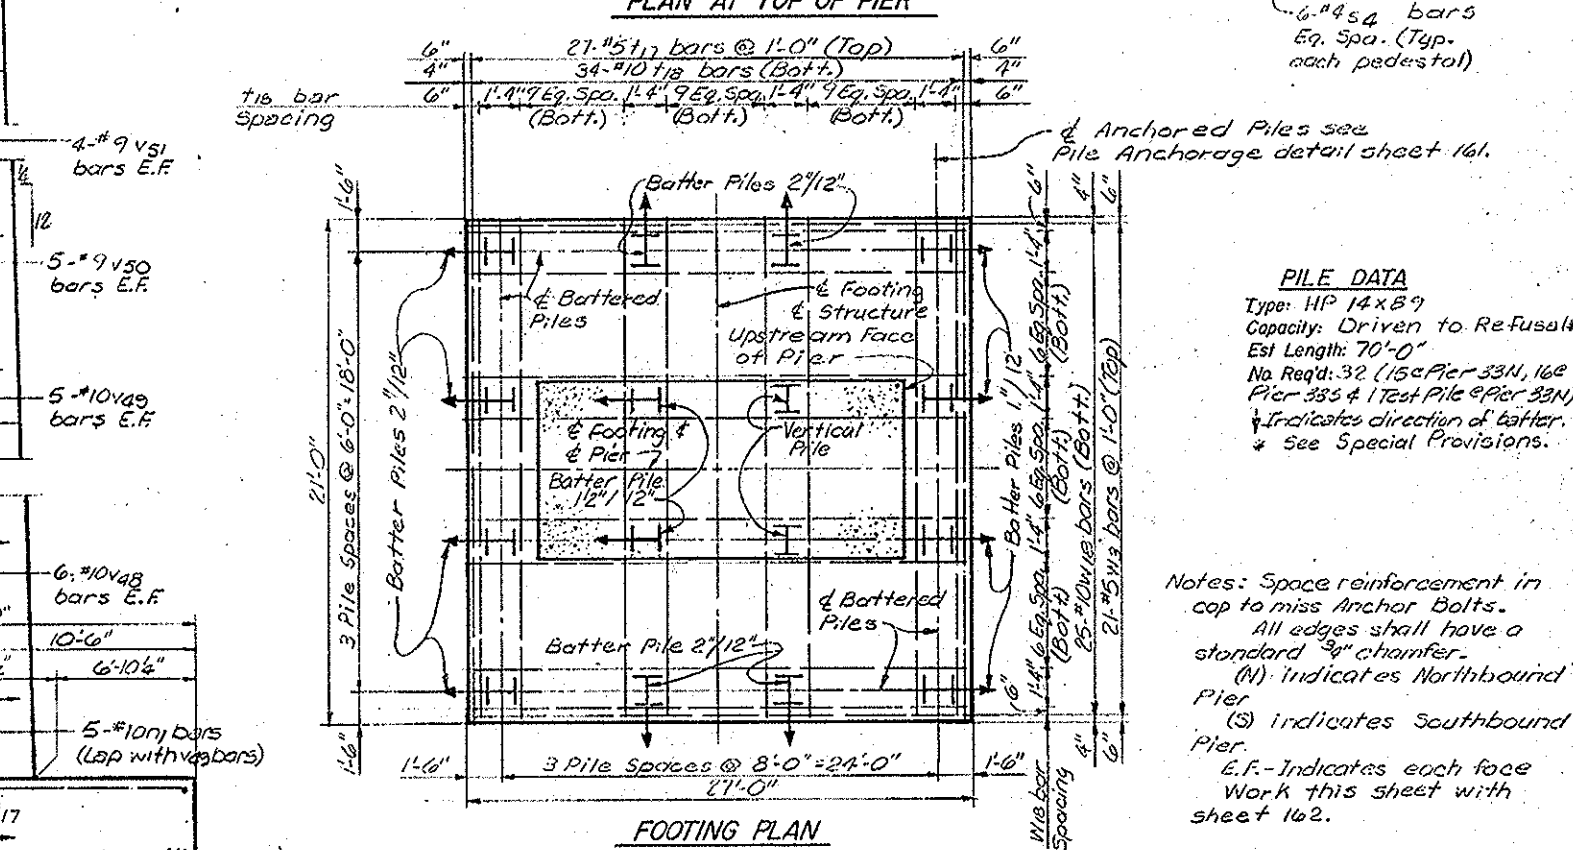 PLAN AT TOP OF PIER
6"
27-#5t17 bars @ 1'-0" (Top)
6"
4"
34-#10 t18 bars (Bott.)
4"
6"
1'-4"
9 Eq. Spa.
(Bott.)
1'-4"
9 Eq. Spa.
(Bott.)
1'-4"
9 Eq. Spa.
(Bott.)
1'-4"
6"
t18 bar
Spacing
6-#4s4 bars
Eq. Spa. (Typ.
each pedestal)
℄ Anchored Piles see
Pile Anchorage detail sheet 161.
4-#9 v51
bars E.F.
12
5-#9 v50
bars E.F.
5-#10v49
bars E.F.
6-#10v48
bars E.F.
10'-6"
6'-10¼"
5-#10n1 bars
(Lap with v48 bars)
17
1'-6"
21'-0"
3 Pile Spaces @ 6'-0" = 18'-0"
1'-6"
Batter Piles 2"/12"
Batter Piles 2"/12"
℄ Battered
Piles
℄ Footing
℄ Structure
Upstream Face
of Pier
℄ Footing &
℄ Pier
Batter Pile
1½"/12"
Vertical
Pile
℄ Battered
Piles
Batter Pile 2"/12"
Batter Piles 1"/12"
6"
1'-4"
6 Eq. Spa.
(Bott.)
1'-4"
6 Eq. Spa.
(Bott.)
1'-4"
6 Eq. Spa.
(Bott.)
1'-4"
6"
4"
25-#10w18 bars (Bott.)
4"
6"
21-#5w13 bars @ 1'-0" (Top)
6"
W18 bar
Spacing
1'-6"
3 Pile Spaces @ 8'-0" = 24'-0"
1'-6"
27'-0"
FOOTING PLAN
PILE DATA
Type: HP 14x89
Capacity: Driven to Refusal*
Est Length: 70'-0"
No. Req'd: 32 (15@Pier 33N, 16@
Pier 33S & 1 Test Pile @ Pier 33N)
Indicates direction of batter.
* See Special Provisions.
Notes: Space reinforcement in
cap to miss Anchor Bolts.
All edges shall have a
standard ¾" chamfer.
(N) indicates Northbound
Pier
(S) indicates Southbound
Pier.
E.F.-Indicates each face
Work this sheet with
sheet 162.